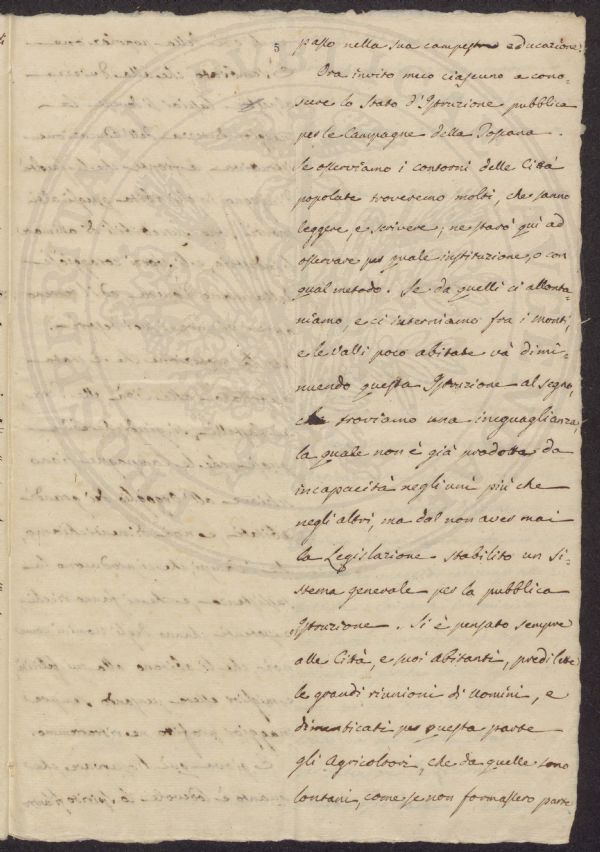 5
passo nella sua campestre educazione.
Ora invito meco ciascuno a cono-
scere lo Stato d'Istruzione pubblica
per le Campagne della Toscana.
Se osserviamo i contorni delle Città
popolate troveremo molti, che sanno
leggere, e scrivere; ne starò quì ad
osservare per quale instituzione, o con
qual metodo. Se da quelli ci allonta-
niamo, e ci interniamo fra i monti,
e le valli poco abitate và dimi-
nuendo questa Istruzione al segno,
che troviamo una ineguaglianza,
la quale non è già prodotta da
incapacità negli uni più che
negli altri, ma dal non aver mai
la Legislazione stabilito un si-
stema generale per la pubblica
Istruzione. Si è pensato sempre
alle Città, e suoi abitanti, predilette
le grandi riunioni di Uomini, e
dimenticati per questa parte
gli Agricoltori, che da quelle sono
lontani, come se non formassero parte